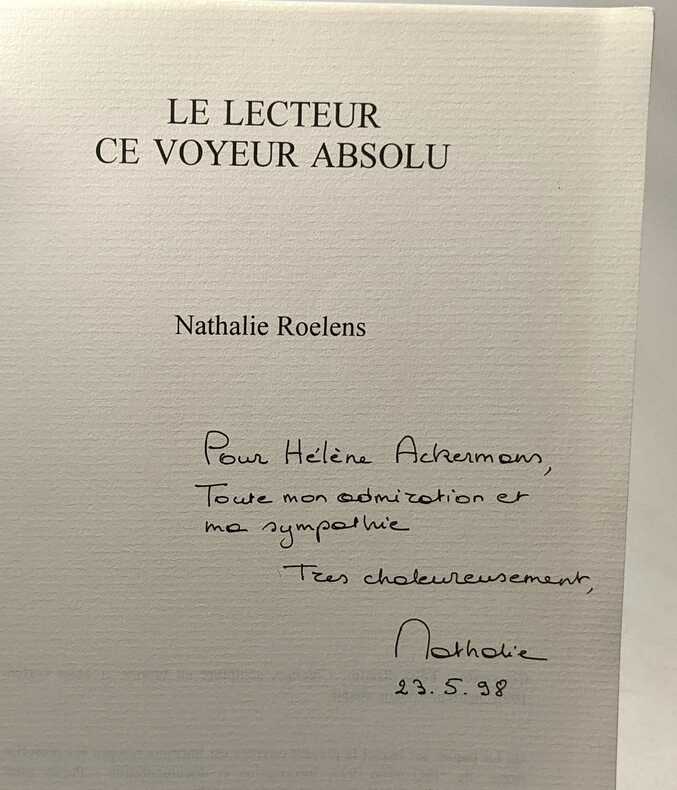 LE LECTEUR
CE VOYEUR ABSOLU
Nathalie Roelens
Pour Hélène Ackermans,
Toute mon admiration et
ma sympathie
Tres chaleureusement,
Nathalie
23.5.98